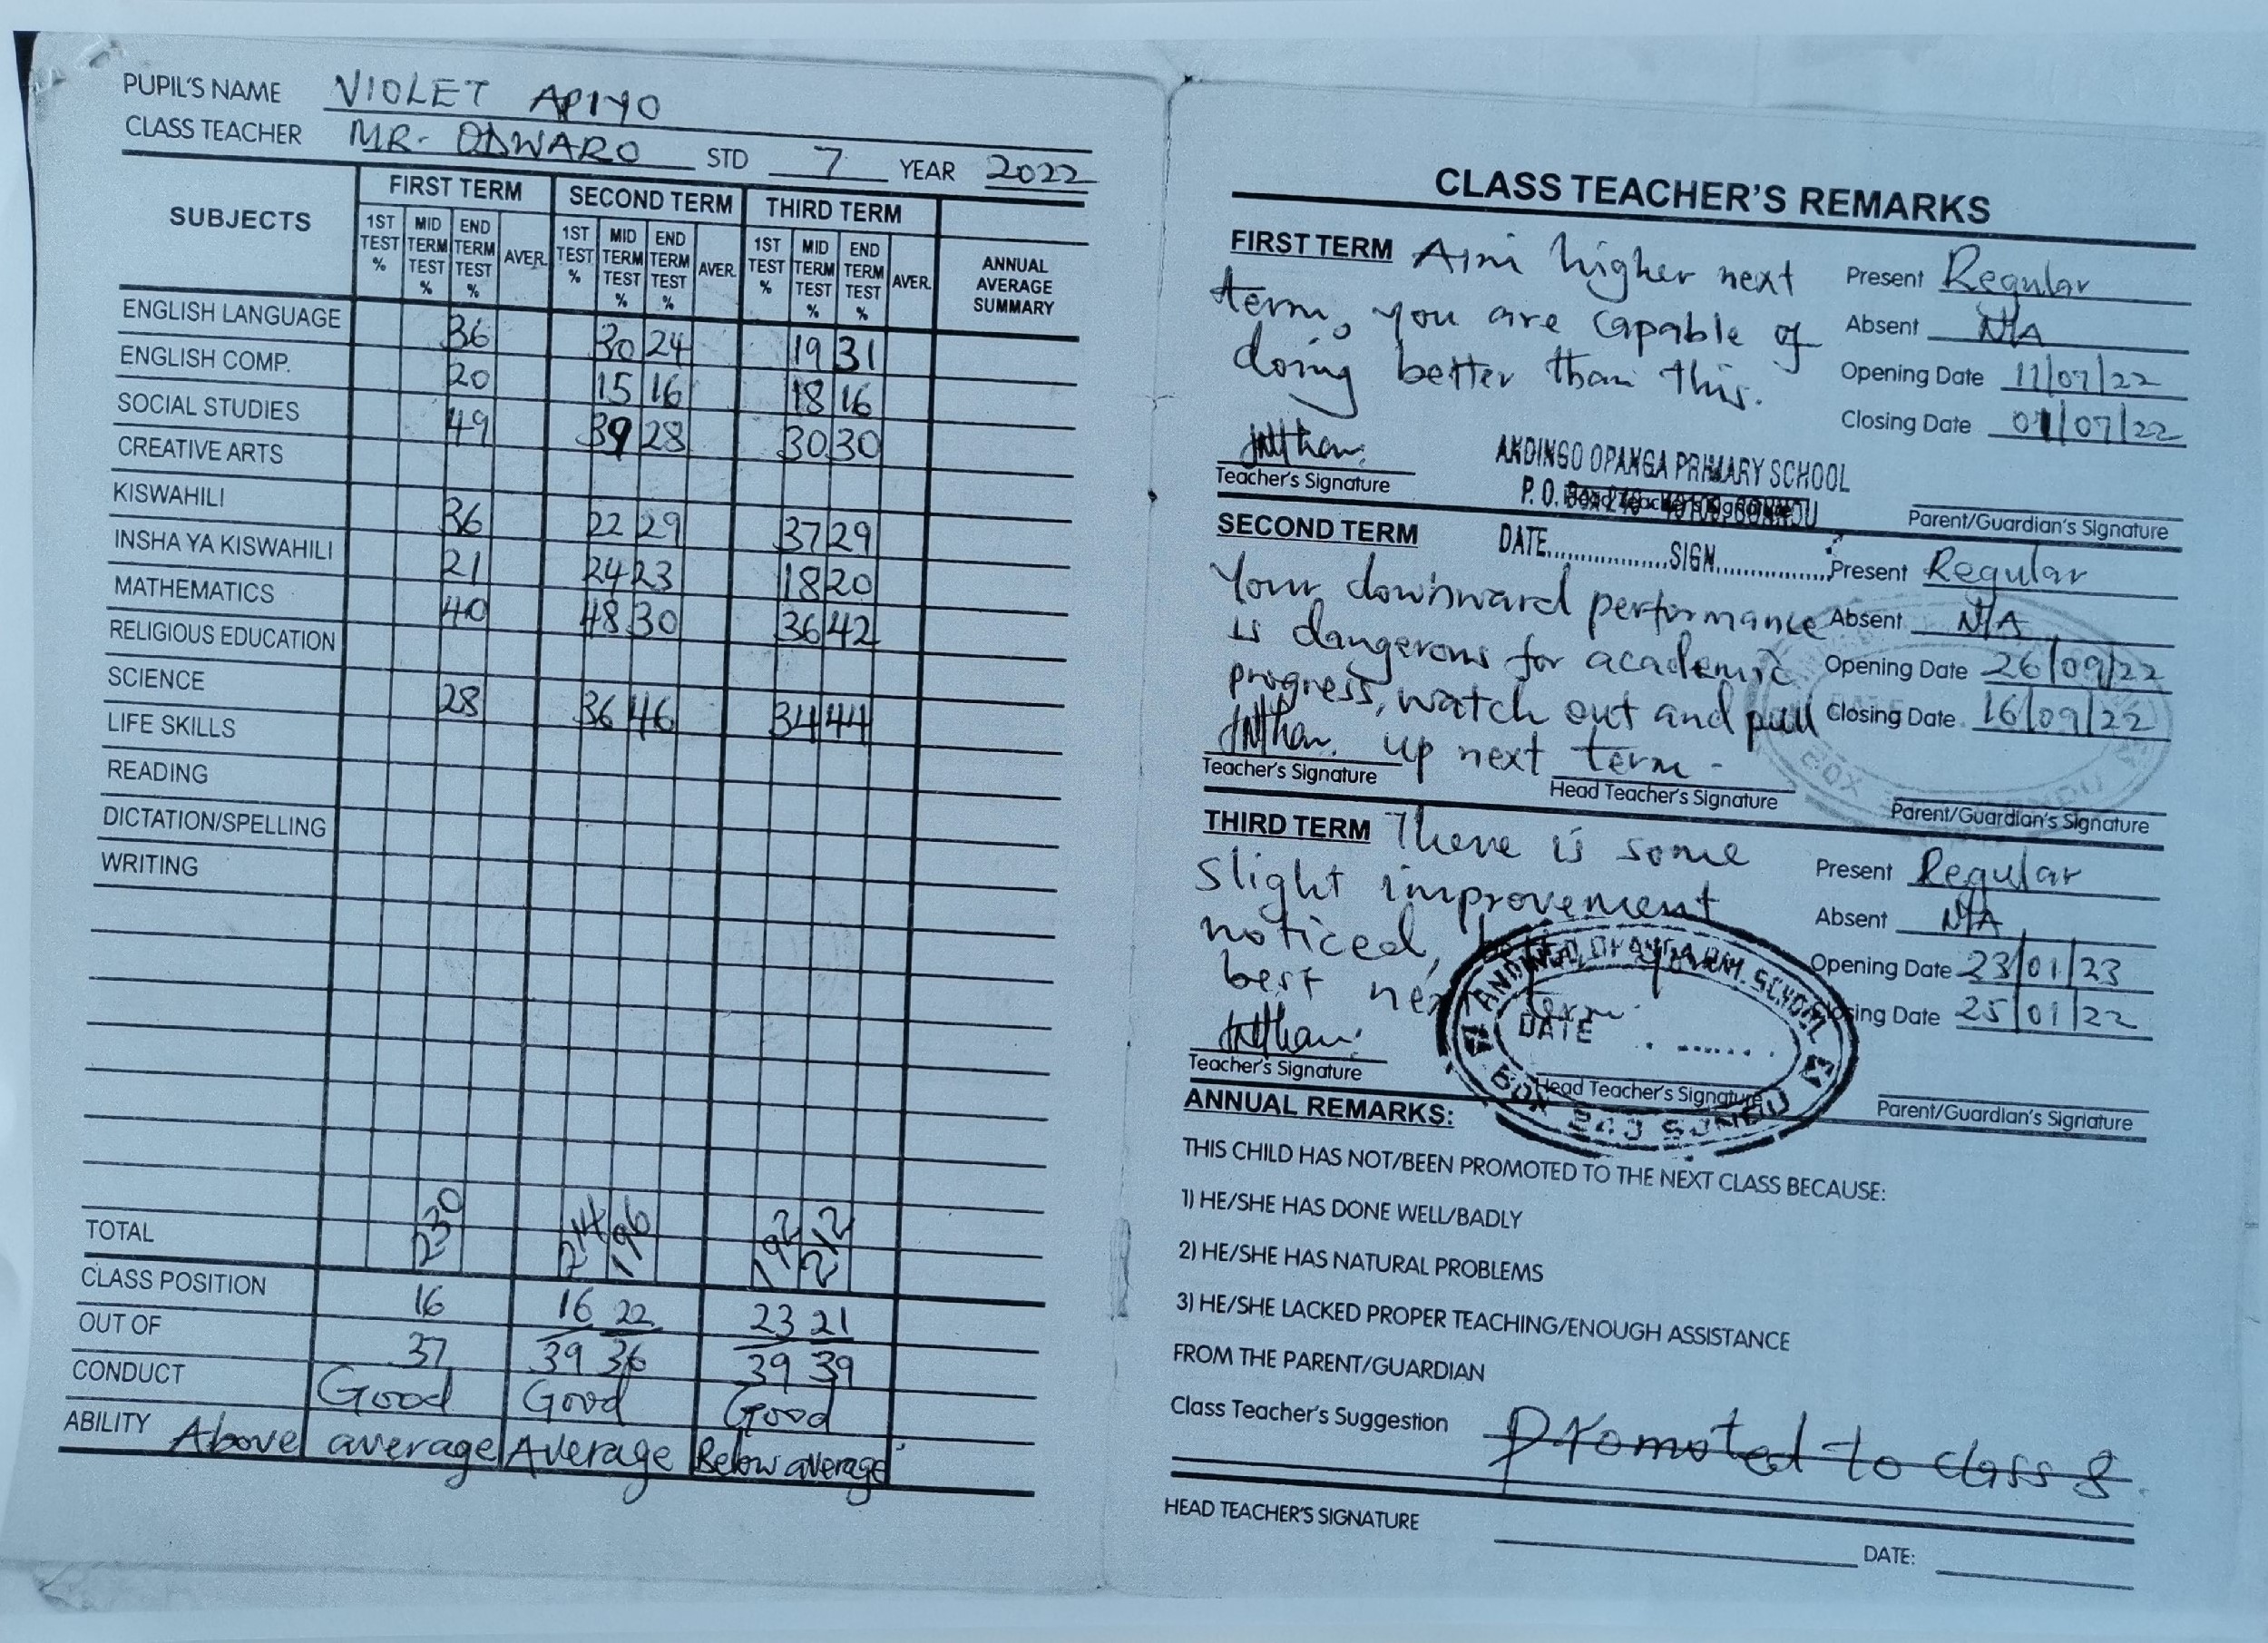 PUPIL'S NAME VIOLET APIYO
CLASS TEACHER MR. ODWARO STD 7 YEAR 2022
SUBJECTS FIRST TERM SECOND TERM THIRD TERM
1ST TEST % MID TERM TEST % END TERM TEST % AVER. 1ST TEST % MID TERM TEST % END TERM TEST % AVER. 1ST TEST % MID TERM TEST % END TERM TEST % AVER. ANNUAL AVERAGE SUMMARY
ENGLISH LANGUAGE 36 30 24 19 31
ENGLISH COMP. 20 15 16 18 16
SOCIAL STUDIES 49 39 28 30 30
CREATIVE ARTS
KISWAHILI 36 22 29 37 29
INSHA YA KISWAHILI 21 24 23 18 20
MATHEMATICS 40 48 30 36 42
RELIGIOUS EDUCATION
SCIENCE 28 36 46 34 44
LIFE SKILLS
READING
DICTATION/SPELLING
WRITING
TOTAL 230 214 196 192 212
CLASS POSITION 16 16 22 23 21
OUT OF 37 39 36 39 39
CONDUCT Good Good Good
ABILITY Above average Average Below average
CLASS TEACHER'S REMARKS
FIRST TERM Aim higher next
term, you are capable of
doing better than this.
Present Regular
Absent N/A
Opening Date 11/07/22
Closing Date 01/07/22
Teacher's Signature
ANDINGO OPANGA PRIMARY SCHOOL
P.O. Box
Head Teacher's Signature
Parent/Guardian's Signature
DATE...............SIGN...............
SECOND TERM
Your downward performance
is dangerous for academic
progress, watch out and pull
up next term.
Present Regular
Absent N/A
Opening Date 26/09/22
Closing Date 16/09/22
BOX
Teacher's Signature
Head Teacher's Signature
Parent/Guardian's Signature
THIRD TERM There is some
slight improvement
noticed,
best next term.
Present Regular
Absent N/A
Opening Date 23/01/23
Closing Date 25/01/22
ANDINGO OPANGA PRM. SCHOOL
DATE
BOX
Teacher's Signature
Head Teacher's Signature
Parent/Guardian's Signature
ANNUAL REMARKS:
THIS CHILD HAS NOT/BEEN PROMOTED TO THE NEXT CLASS BECAUSE:
1) HE/SHE HAS DONE WELL/BADLY
2) HE/SHE HAS NATURAL PROBLEMS
3) HE/SHE LACKED PROPER TEACHING/ENOUGH ASSISTANCE
FROM THE PARENT/GUARDIAN
Class Teacher's Suggestion Promoted to class 8.
HEAD TEACHER'S SIGNATURE
DATE: